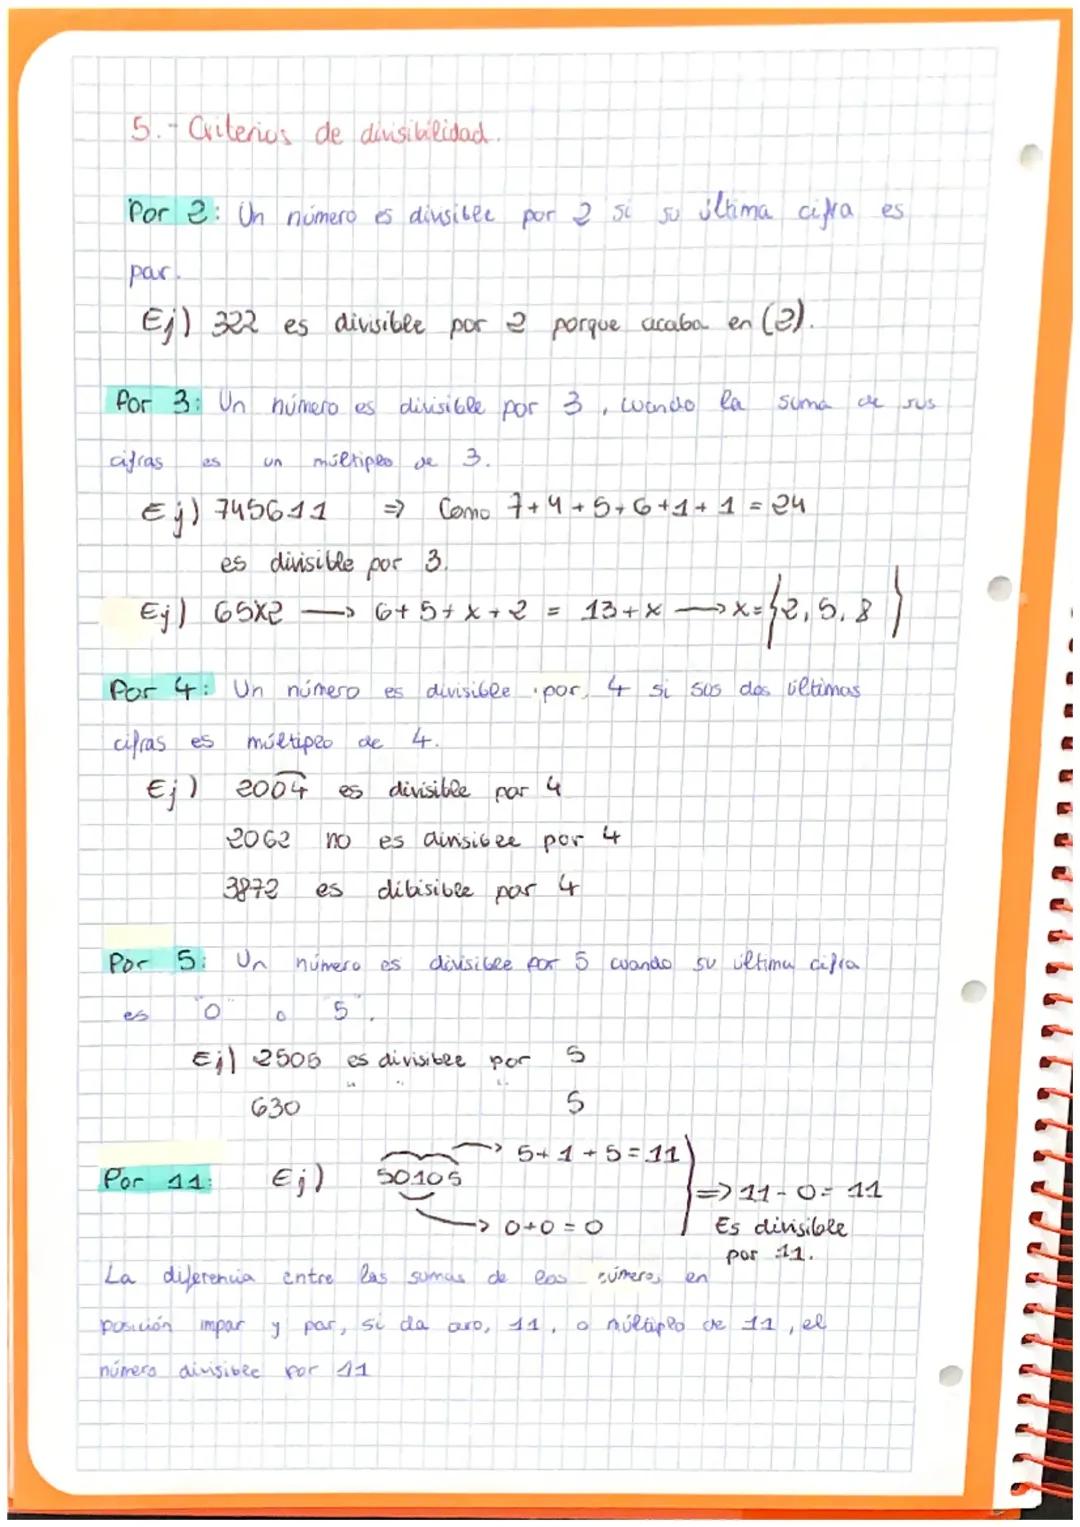 5.- Criterios de divisibilidad.
Por 2: Un número es divisible por 2 si su última cifra es
par.
Ej) 322 es divisible por 2 porque acaba en (2).
Por 3: Un número es divisible por 3, cuando la suma de sus
cifras es un múltiplo de 3.
Ej) 745611 => Como 7+4+5+6+1+1 = 24
es divisible por 3.
Ej) 65x2 → 6+5+x+2 = 13+x → x={2,5,8}
Por 4: Un número es divisible por 4 si sus dos últimas
cifras es múltiplo de 4.
Ej) 2004 es divisible por 4
2062 no es divisible por 4
3872 es dibisible por 4
Por 5: Un número es divisible por 5 cuando su última cifra
es "0" o "5".
Ej) 2505 es divisible por 5
630 " " " 5
Por 11: Ej) 50105 → 5+1+5=11
→ 0+0=0
=> 11-0=11
Es divisible
por 11.
La diferencia entre las sumas de los números en
posición impar y par, si da cero, 11, o múltiplo de 11, el
número divisible por 11